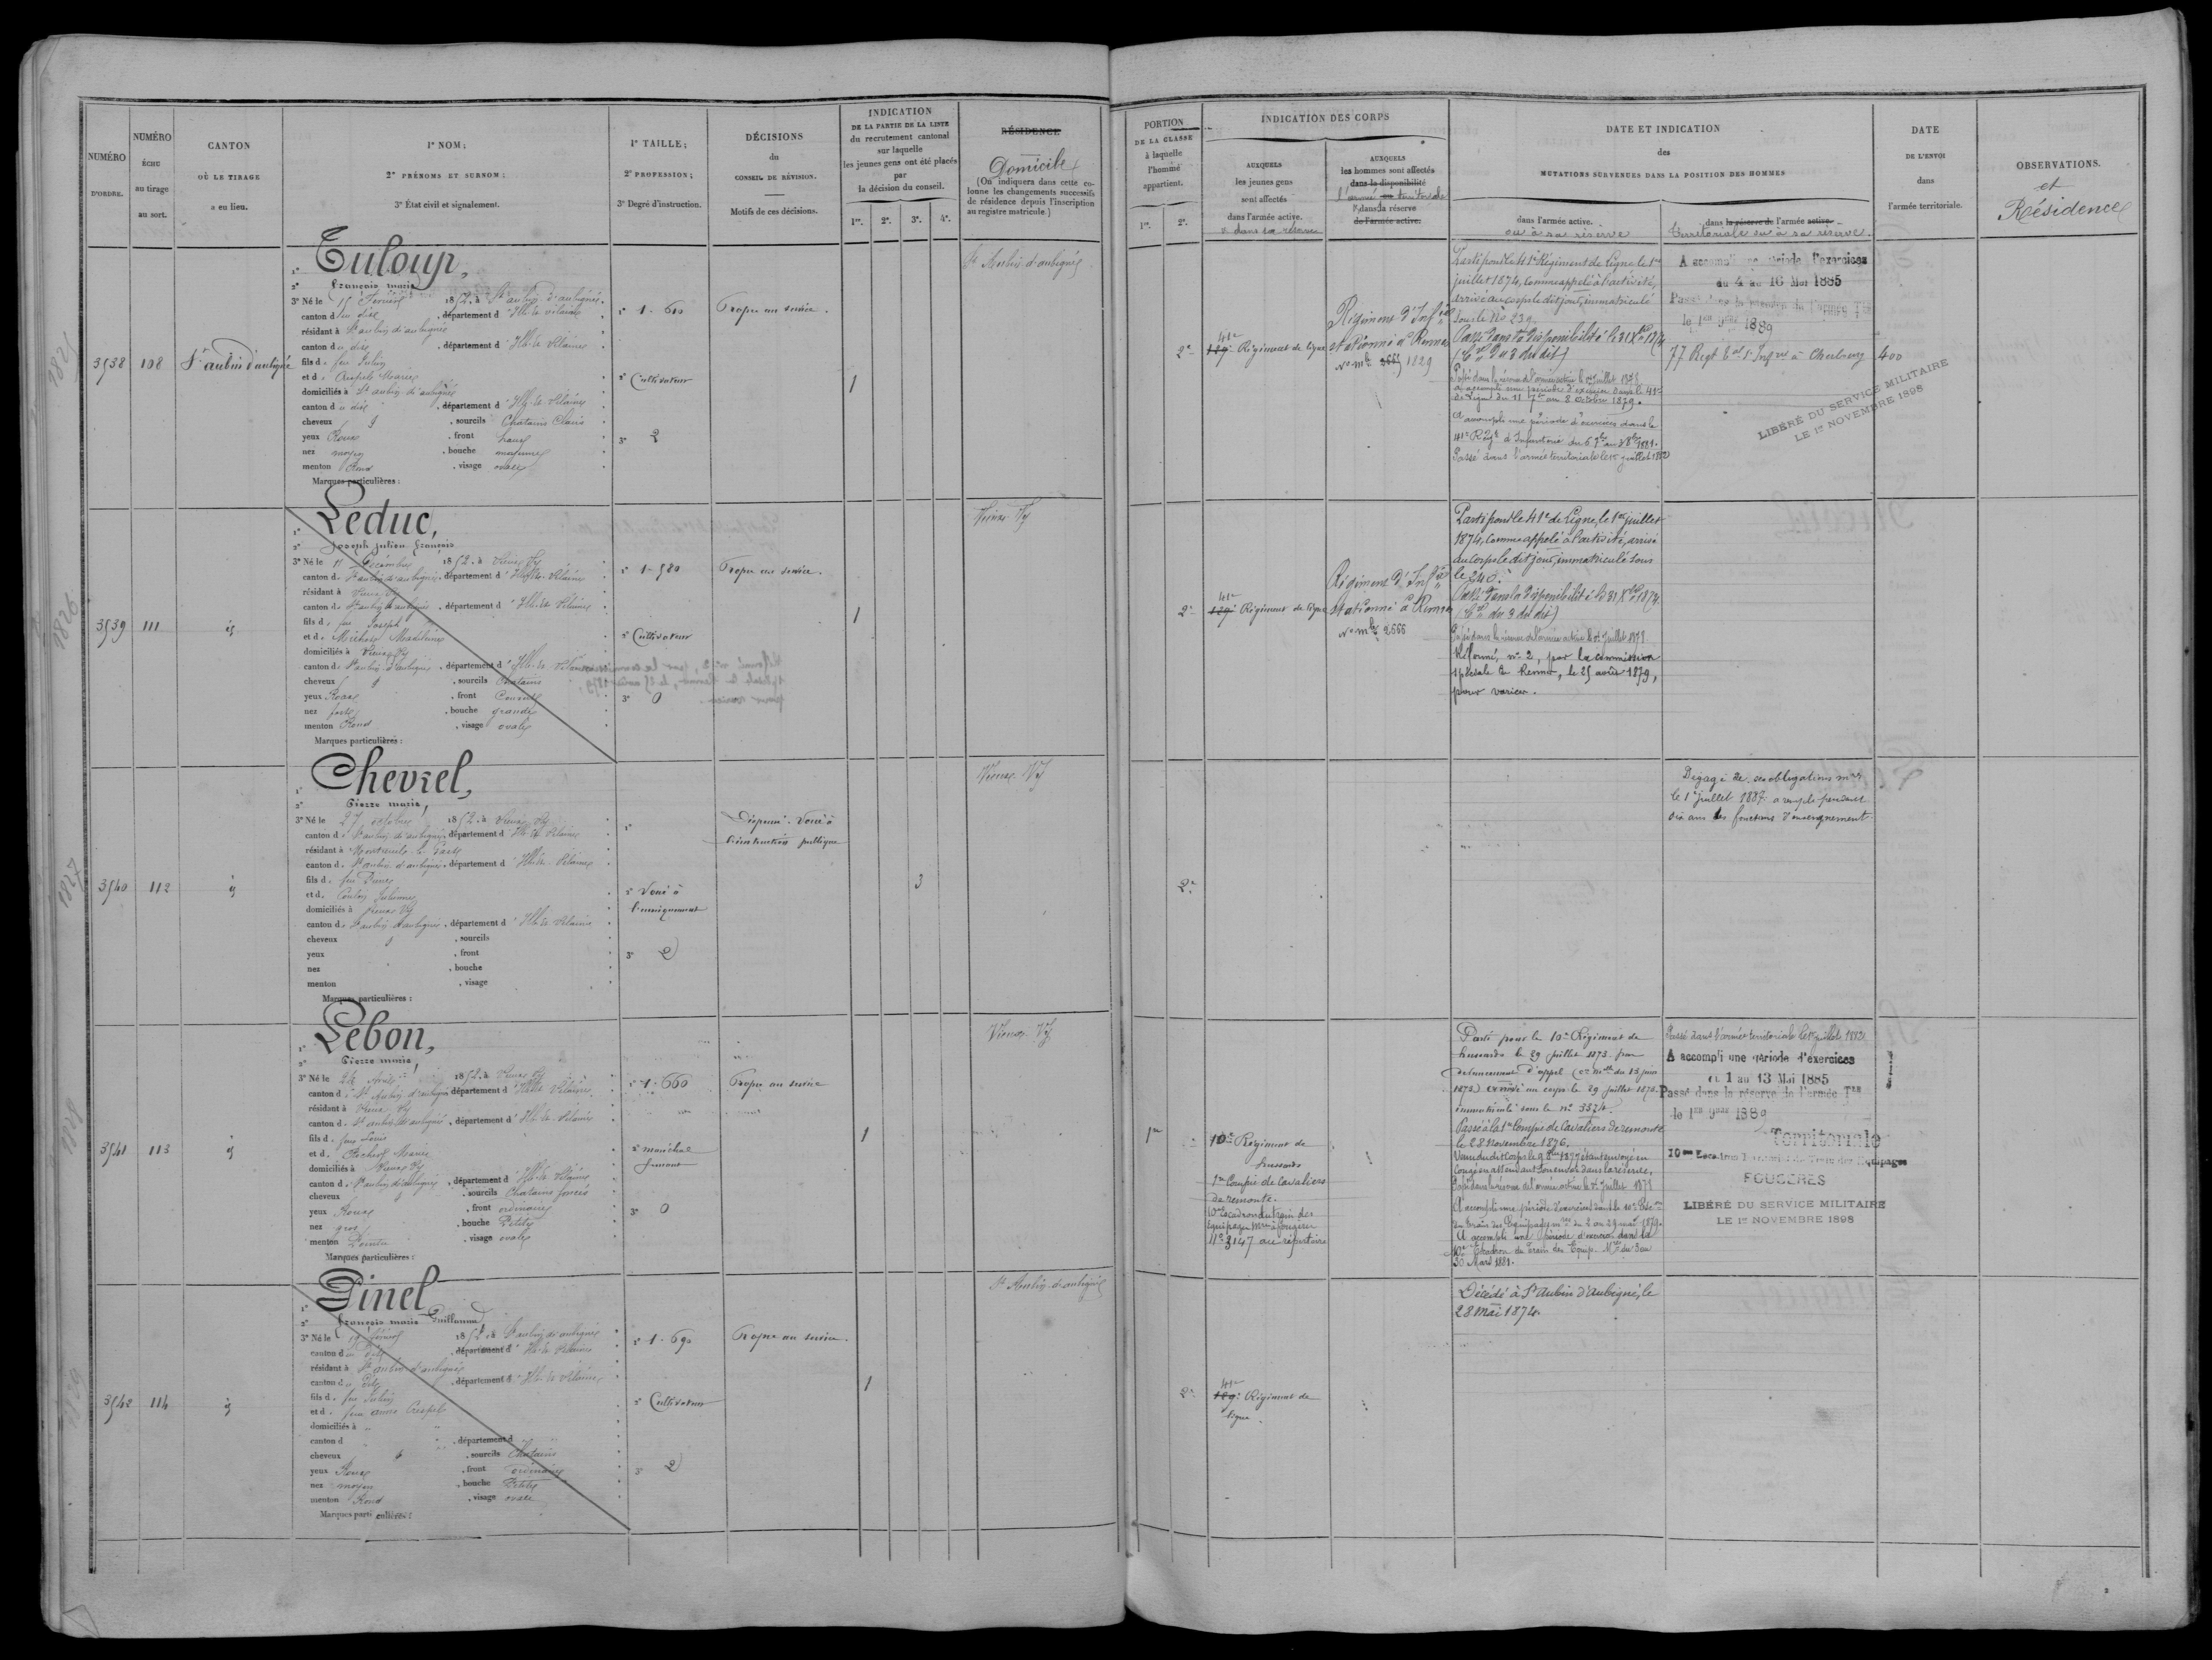 NUMÉRO
D'ORDRE.
NUMÉRO
ÉCHU
au tirage
au sort.
CANTON
OÙ LE TIRAGE
a eu lieu.
1º NOM;
2º PRÉNOMS ET SURNOM;
3º État civil et signalement.
1º TAILLE;
2º PROFESSION;
3º Degré d'instruction.
DÉCISIONS
du
CONSEIL DE RÉVISION.
Motifs de ces décisions.
INDICATION
DE LA PARTIE DE LA LISTE
du recrutement cantonal
sur laquelle
les jeunes gens ont été placés
par
la décision du conseil.
1re. 2e. 3e. 4e.
RÉSIDENCE
Domicile
(On indiquera dans cette co-
lonne les changements successifs
de résidence depuis l'inscription
au registre matricule.)
PORTION
DE LA CLASSE
à laquelle
l'homme
appartient.
1re. 2e.
INDICATION DES CORPS
AUXQUELS
les jeunes gens
sont affectés
dans l'armée active.
ou dans sa réserve
AUXQUELS
les hommes sont affectés
dans la disponibilité
l'armée territoriale
dans la réserve
de l'armée active.
DATE ET INDICATION
des
MUTATIONS SURVENUES DANS LA POSITION DES HOMMES
dans l'armée active.
ou à sa réserve
dans la réserve de l'armée active
territoriale ou à sa réserve.
DATE
DE L'ENVOI
dans
l'armée territoriale.
OBSERVATIONS.
et
Résidence
3538
108
St aubin d'aubigné
1º Tuloup,
2º François marie
3º Né le 15 Février 1852. à St aubin d'aubigné.
canton du dit, département d'Ille-et-vilaine
résidant à St aubin d'aubigné
canton du dit, département d'Ille-et-Vilaine
fils de feu Julien
et de Marie
domiciliés à St aubin d'aubigné
canton du dit, département d'Ille-et-Vilaine
cheveux et, sourcils Chatains Clairs
yeux Roux, front haut
nez moyen, bouche moyenne
menton Rond, visage ovale
Marques particulières :
1º 1-610
2º Cultivateur
3º 2
Propre au service.
1
St Aubin d'aubigné
2e
41e
129e Régiment de ligne
Régiment d'Infie
stationné à Rennes
No mle 2665 1829
Parti pour le 41e Régiment de Ligne le 1er
juillet 1874, comme appelé à l'activité,
arrivé au corps le dit jour, immatriculé
sous le No 239
Passé dans la disponibilité le 31 Xbre 1874
(Cre du 3 du dit)
Passé dans la réserve de l'armée active le 1er juillet 1878
a accompli une période d'exercices dans le 41e
de Ligne du 11 7bre au 8 octobre 1879.
A accompli une période d'exercices dans le
41e Régt d'Infanterie du 6 7bre au 3 8bre 1881.
Passé dans l'armée territoriale le 1er juillet 1882
A accompli une période d'exercices
du 4 au 16 Mai 1885
Passé dans la réserve de l'armée Tle
le 1er 9bre 1889
77 Regt tal d'Infrie à Cherbourg
400
LIBÉRÉ DU SERVICE MILITAIRE
LE 1er NOVEMBRE 1898
3539
111
id
1º Leduc,
2º Joseph Julien François
3º Né le 11 Décembre 1852. à Vieux Vy
canton de St aubin d'aubigné, département d'Ille-et-Vilaine
résidant à Vieux Vy
canton de St aubin d'aubigné, département d'Ille-et-Vilaine
fils de feu Joseph
et de Michot Madeleine
domiciliés à Vieux Vy
canton de St aubin d'aubigné, département d'Ille-et-Vilaine
cheveux et, sourcils Chatains
yeux Roux, front Couvert
nez fort, bouche grande
menton Rond, visage ovale
Marques particulières :
1º 1-580
2º Cultivateur
3º 0
Propre au service.
1
Vieux Vy
2e
41e
129e Régiment de ligne
Régiment d'Infie
stationné à Rennes
No mle 2666
Parti pour le 41e de Ligne, le 1er juillet
1874, comme appelé à l'activité, arrivé
au corps le dit jour, immatriculé sous
le 240.
Passé dans la disponibilité le 31 Xbre 1874
(Cre du 3 du dit)
Passé dans la réserve de l'armée active le 1er Juillet 1878
Réformé, no 2, par la commission
spéciale de Rennes, le 25 août 1879,
pour varices.
3540
112
id
1º Chevrel,
2º Pierre marie,
3º Né le 27 octobre 1852. à Vieux Vy
canton de St aubin d'aubigné, département d'Ille-et-Vilaine
résidant à Montreuil-le-Gast
canton de St aubin d'aubigné, département d'Ille-et-Vilaine
fils de feu Pierre
et de Coulon Julienne
domiciliés à Vieux Vy
canton de St aubin d'aubigné, département d'Ille-et-Vilaine
cheveux et, sourcils
yeux, front
nez, bouche
menton, visage
Marques particulières :
1º
2º Voué à
l'enseignement
3º 2
Dispensé. Voué à
l'instruction publique
3
Vieux Vy
2e
Dégagé de ses obligations mres
le 1er juillet 1887 a rempli pendant
dix ans les fonctions d'enseignement
3541
113
id
1º Lebon,
2º Pierre marie,
3º Né le 24 Avril 1852. à Vieux Vy
canton de St Aubin d'aubigné département d'Ille-et-Vilaine.
résidant à Vieux Vy
canton de St aubin d'aubigné, département d'Ille-et-Vilaine
fils de feu Louis
et de Marie
domiciliés à Vieux Vy
canton de St aubin d'aubigné, département d'Ille-et-Vilaine
cheveux et, sourcils Chatains foncés
yeux Roux, front ordinaire
nez gros, bouche Petite
menton Pointu, visage ovale
Marques particulières :
1º 1-660
2º maréchal
ferrant
3º 0
Propre au service
1
Vieux Vy
1re
10e Régiment de
hussards
1re Compie de Cavaliers
de remonte.
10e Escadron du train des
Equipages mres à fougères
No 3147 au répertoire
Parti pour le 10e Régiment de
hussards le 29 juillet 1873 par
devancement d'appel (ce mle du 13 juin
1873) arrivé au corps le 29 juillet 1873.
immatriculé sous le no 3374
Passé à la 1re Compie de Cavaliers de remonte
le 28 novembre 1876.
congé en attendant son envoi dans la réserve.
Passé dans la réserve de l'armée active le 1er Juillet 1878
A accompli une période d'exercices dans le 10e Escon
du train des Equipages mres du 2 au 29 mai 1879.
A accompli une période d'exercices dans le
10e Escadron du Train des Equip. Mres du 3 au
30 Mars 1881.
Passé dans l'armée territoriale le 1er juillet 1882
A accompli une période d'exercices
du 1 au 13 Mai 1885
Passé dans la réserve de l'armée Tle
le 1er 9bre 1889
Territoriale
10me Escadron Territorial du Train des Equipages
FOUGÈRES
LIBÉRÉ DU SERVICE MILITAIRE
LE 1er NOVEMBRE 1898
3542
114
id
1º Pinel
2º François marie Guillaume
3º Né le 19 février 1852 à St aubin d'aubigné
canton du dit, département d'Ille-et-Vilaine
résidant à St aubin d'aubigné
canton du dit, département d'Ille-et-Vilaine
fils de feu Julien
et de feu anne Crespel
domiciliés à
canton d, département d
cheveux et, sourcils Chatains
yeux Roux, front ordinaire
nez moyen, bouche Petite
menton Rond, visage ovale
Marques particulières :
1º 1-690
2º Cultivateur
3º 2
Propre au service.
1
St Aubin d'aubigné
2e
41e
129e Régiment de
ligne.
Décédé à St Aubin d'Aubigné, le
28 mai 1874.
1825
1826
1827
1828
1829